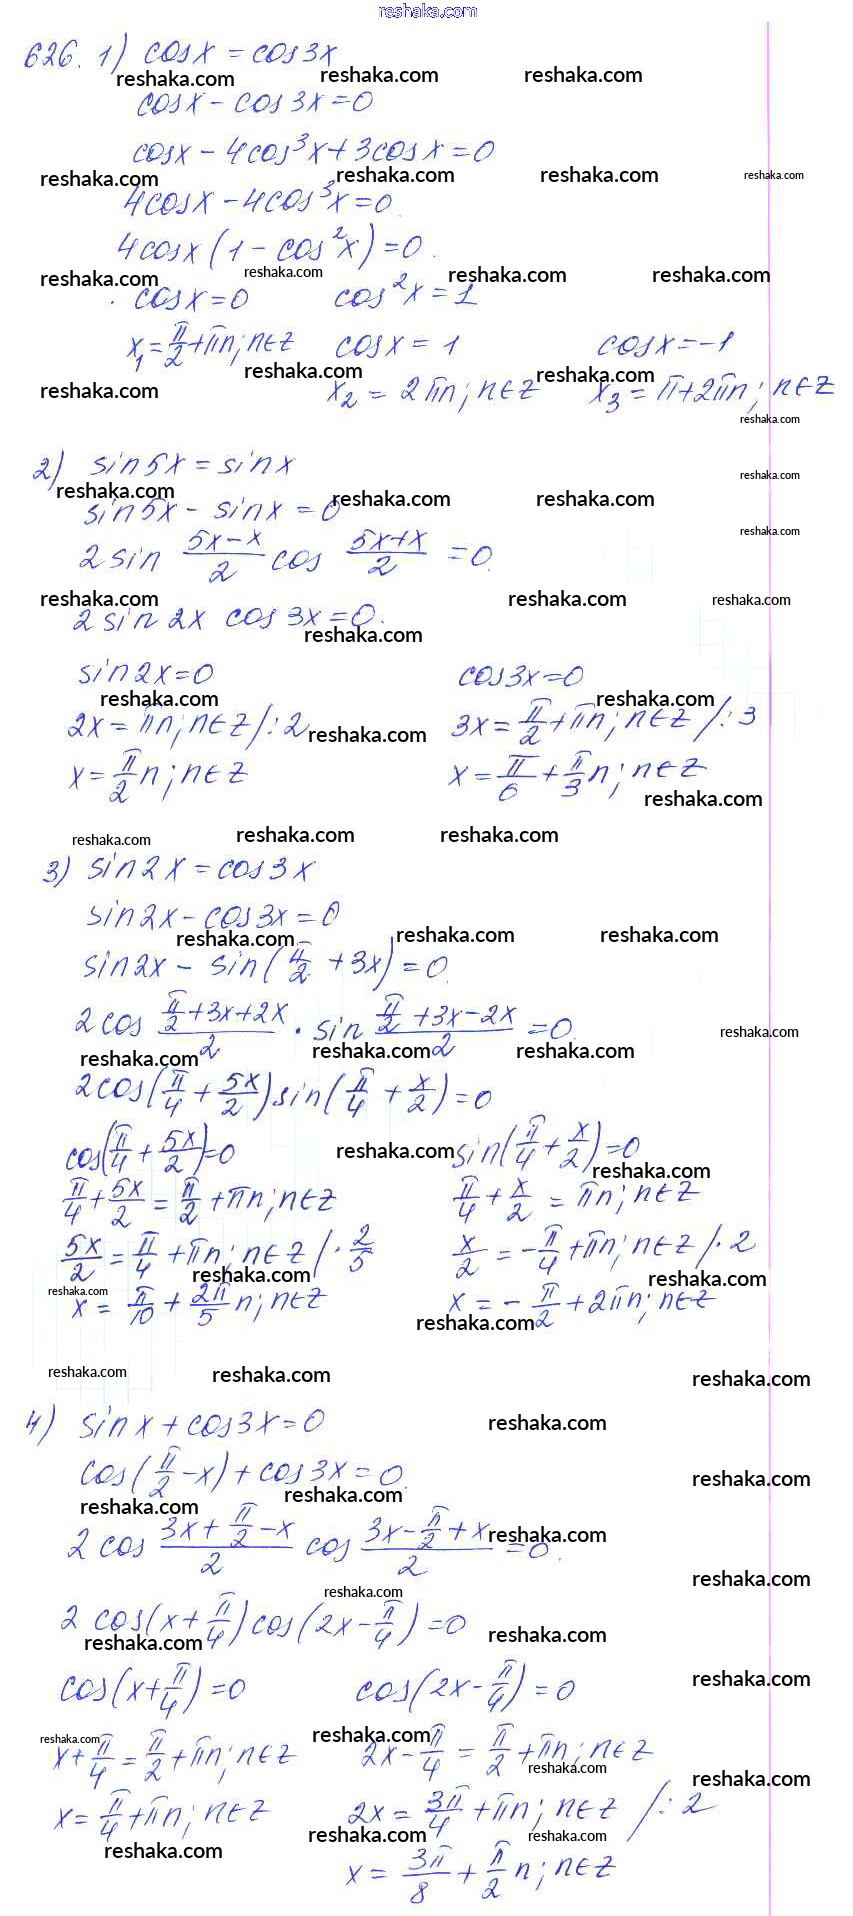 reshaka.com
626. 1) cosx = cos3x
reshaka.com reshaka.com reshaka.com
cosx - cos 3x = 0
cosx - 4cos³x + 3cosx = 0
reshaka.com reshaka.com reshaka.com reshaka.com
4cosx - 4cos³x = 0.
4cosx (1 - cos²x) = 0.
reshaka.com reshaka.com reshaka.com reshaka.com
cosx = 0 cos²x = 1
x₁ = π/2 + πn; n∈Z cosx = 1 cosx = -1
reshaka.com reshaka.com reshaka.com
x₂ = 2πn; n∈Z x₃ = π + 2πn; n∈Z
reshaka.com
2) sin5x = sinx
reshaka.com reshaka.com reshaka.com reshaka.com
sin5x - sinx = 0
reshaka.com
2 sin (5x-x)/2 cos (5x+x)/2 = 0.
reshaka.com reshaka.com reshaka.com
2 sin 2x cos 3x = 0.
reshaka.com
sin2x = 0 cos3x = 0
reshaka.com reshaka.com
2x = πn; n∈Z /:2 3x = π/2 + πn; n∈Z /:3
reshaka.com
x = π/2 n; n∈Z x = π/6 + π/3 n; n∈Z
reshaka.com
reshaka.com reshaka.com reshaka.com
3) sin2x = cos3x
sin2x - cos3x = 0
reshaka.com reshaka.com reshaka.com
sin2x - sin(π/2 + 3x) = 0.
2 cos (π/2+3x+2x)/2 · sin (π/2+3x-2x)/2 = 0.
reshaka.com
reshaka.com reshaka.com reshaka.com
2cos(π/4 + 5x/2) sin(π/4 + x/2) = 0
cos(π/4 + 5x/2) = 0 sin(π/4 + x/2) = 0
reshaka.com reshaka.com
π/4 + 5x/2 = π/2 + πn; n∈Z π/4 + x/2 = πn; n∈Z
5x/2 = π/4 + πn; n∈Z /· 2/5 x/2 = -π/4 + πn; n∈Z /· 2
reshaka.com reshaka.com reshaka.com
x = π/10 + 2π/5 n; n∈Z x = - π/2 + 2πn; n∈Z
reshaka.com
reshaka.com reshaka.com reshaka.com
4) sinx + cos3x = 0
reshaka.com
cos(π/2 - x) + cos3x = 0.
reshaka.com reshaka.com reshaka.com
2 cos (3x + π/2 - x)/2 cos (3x - π/2 + x)/2 = 0.
reshaka.com
reshaka.com reshaka.com
2 cos(x + π/4) cos(2x - π/4) = 0
reshaka.com reshaka.com
cos(x + π/4) = 0 cos(2x - π/4) = 0
reshaka.com
reshaka.com reshaka.com
x + π/4 = π/2 + πn; n∈Z 2x - π/4 = π/2 + πn; n∈Z
reshaka.com reshaka.com
x = π/4 + πn; n∈Z 2x = 3π/4 + πn; n∈Z /:2
reshaka.com reshaka.com reshaka.com
x = 3π/8 + π/2 n; n∈Z